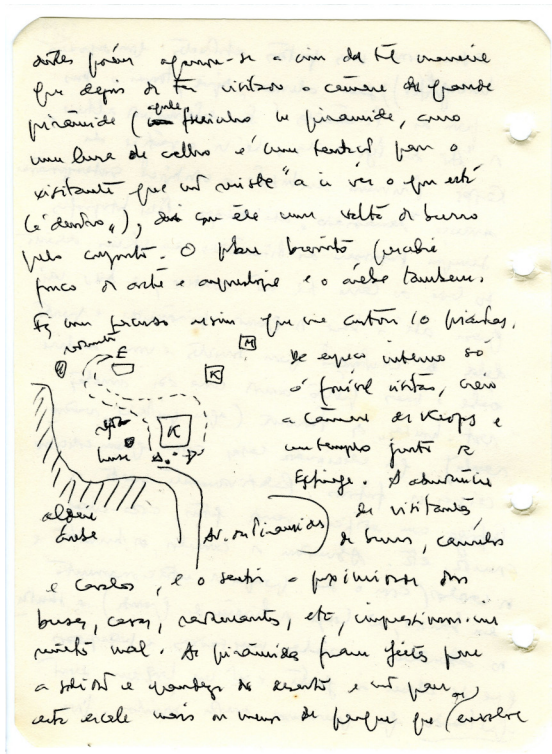 destes porém aproxima-se a cim da tal maneira
que depois de ter visitado a câmara da grande
pirâmide (aquele buraquinho na pirâmide, como
uma lura de coelho é uma tentação para o
visitante que não resiste "a ir ver o que está
lá dentro"), dar com ele uma volta de burro
pelo conjunto. O
pouco de arte e arquitetura e o árabe também.
Fiz um percurso assim que me custou 10 piastras.
restaurante
E
M
K
K
aldeia
árabe
Av. das Pirâmides
De espaço interno só
é possível visitar, creio
a Câmara de Keops e
um templo junto à
Esfinge. A abundância
de visitantes
de burros, camelos
e cavalos, e o sentir a proximidade dos
buses, casas, restaurantes, etc, impressionou-me
muito mal. As pirâmides foram feitas para
a solidão e grandeza do deserto e não para
esta escala mais ou menos de parque que (envolve